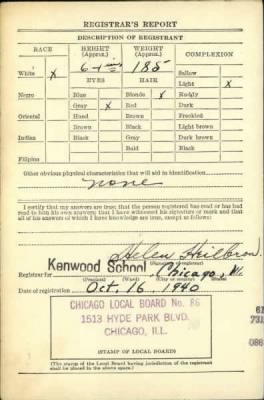 REGISTRAR'S REPORT
DESCRIPTION OF REGISTRANT
RACE HEIGHT (Approx.) WEIGHT (Approx.) COMPLEXION
185 Sallow
White X EYES HAIR Light X
Negro Blue Blonde X Ruddy
Gray X Red Dark
Oriental Hazel Brown Freckled
Brown Black Light brown
Indian Black Gray Dark brown
Bald Black
Filipino
Other obvious physical characteristics that will aid in identification
none
I certify that my answers are true; that the person registered has read or has had
read to him his own answers; that I have witnessed his signature or mark and that
all of his answers of which I have knowledge are true, except as follows:
Helen Heilbron
(Signature of registrar)
Registrar for Kenwood School Chicago, Ill.
(Precinct) (Ward) (City or county) (State)
Date of registration Oct. 16, 1940
CHICAGO LOCAL BOARD No. 86
1513 HYDE PARK BLVD.
CHICAGO, ILL.
(STAMP OF LOCAL BOARD)
(The stamp of the Local Board having jurisdiction of the registrant
shall be placed in the above space.)